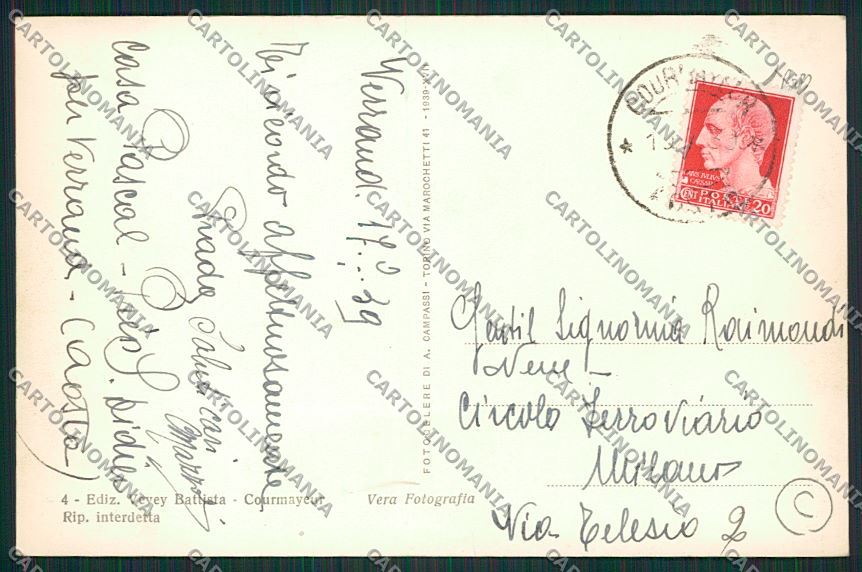 Verrand. 17... 39
Ti ricordo affettuosamente
Saluti cari
casa Pascal - Prè S. Didier
per Verrand - (Aosta)
4 - Ediz. Vevey Battista - Courmayeur
Rip. interdetta
Vera Fotografia
FOTOCELERE DI A. CAMPASSI - TORINO VIA MAROCHETTI 41 - 1939-XVII
COURMAYEUR
POSTE
ITALIANE
CENT 20
Gentil Signorina Raimondi
Circolo Ferroviario
Milano
Via Telesio 2
C
CARTOLINOMANIA